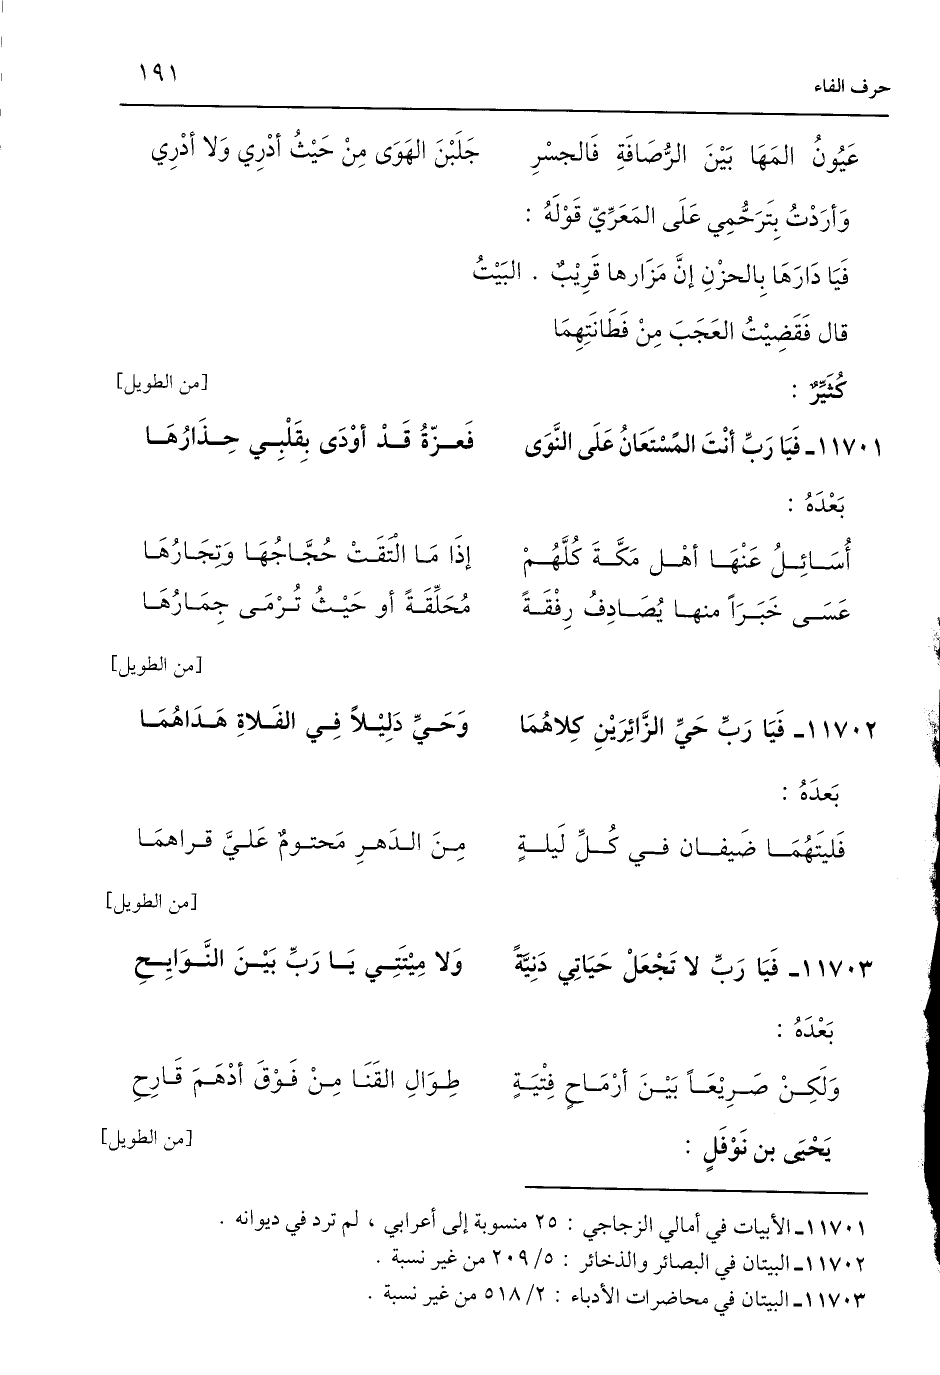 حرف الفاء ١٩١
عَيُونُ المَهَا بَيْنَ الرُّصَافَةِ فَالجسْرِ جَلَبْنَ الهَوَى مِنْ حَيْثُ أدْرِي وَلا أدْرِي
وَأرَدْتُ بِتَرَحُّمِي عَلَى المَعَرِّيّ قَوْلَهُ :
فَيَا دَارَهَا بِالحزْنِ إنَّ مَزَارها قَرِيْبٌ . البَيْتُ
قال فَقَضِيْتُ العَجَبَ مِنْ فَطَانَتِهِمَا
كُثَيِّرٌ : [من الطويل]
١١٧٠١ـ فَيَا رَبِّ أنْتَ المُسْتَعَانُ عَلَى النَّوَى فَعزّةُ قَدْ أوْدَى بِقَلْبِي حِذَارُهَا
بَعْدَهُ :
أُسَائِلُ عَنْهَا أهْل مَكَّةَ كُلَّهُمْ إذَا مَا الْتَقَتْ حُجَّاجُهَا وَتِجَارُهَا
عَسَى خَبَرَاً منها يُصَادِفُ رِفْقَةً مُحَلِّقَةً أو حَيْثُ تُرْمَى جِمَارُهَا
[من الطويل]
١١٧٠٢ـ فَيَا رَبِّ حَيِّ الزَّائِرَيْنِ كِلاهُمَا وَحَيِّ دَلِيْلاً فِي الفَلاةِ هَدَاهُمَا
بَعدَهُ :
فَليَتَهُمَا ضَيفان في كُلِّ لَيلةٍ مِنَ الدَهرِ مَحتومٌ عَليَّ قراهما
[من الطويل]
١١٧٠٣ـ فَيَا رَبِّ لا تَجْعَلْ حَيَاتِي دَنِيَّةً وَلا مِيْتَتِي يَا رَبِّ بَيْنَ النَّوَايِحِ
بَعْدَهُ :
وَلَكِنْ صَرِيْعَاً بَيْنَ أرْمَاحِ فِتْيَةٍ طِوَالِ القَنَا مِنْ فَوْقَ أدْهَمَ قَارِحِ
يَحْيَى بن نَوْفَلٍ : [من الطويل]
١١٧٠١ـ الأبيات في أمالي الزجاجي : ٢٥ منسوبة إلى أعرابي ، لم ترد في ديوانه .
١١٧٠٢ـ البيتان في البصائر والذخائر : ٥/ ٢٠٩ من غير نسبة .
١١٧٠٣ـ البيتان في محاضرات الأدباء : ٢/ ٥١٨ من غير نسبة .